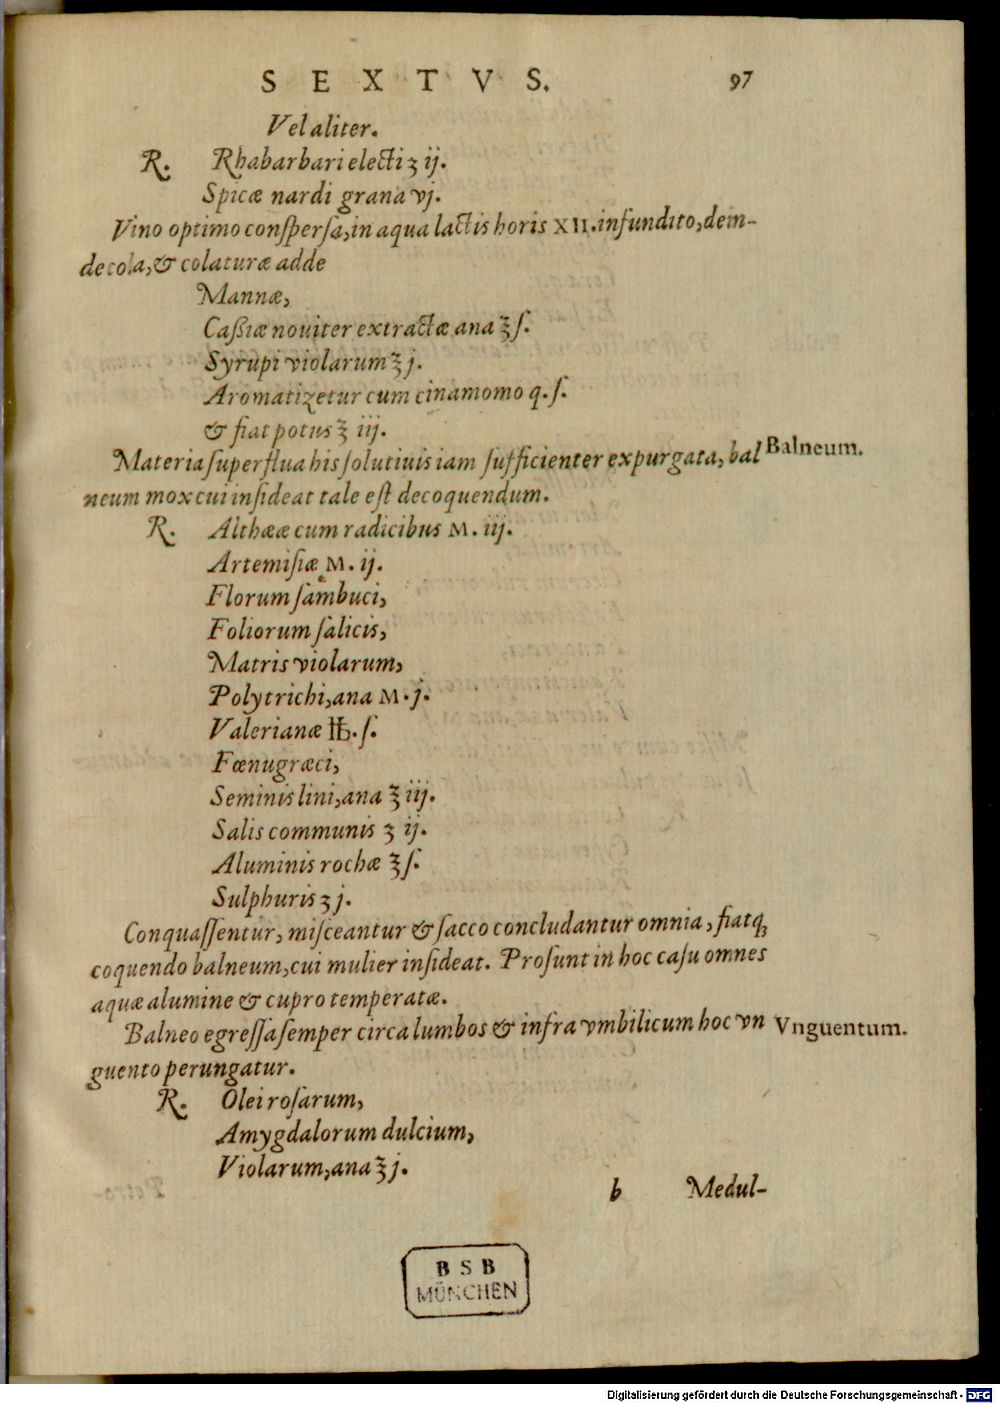 SEXTVS. 97
Vel aliter.
R. Rhabarbari electi ʒ ij.
Spicæ nardi grana vj.
Vino optimo conſperſa, in aqua lactis horis XII. infundito, dein-
de cola, & colaturæ adde
Mannæ,
Caßiæ nouiter extractæ ana ℥ ſ.
Syrupi violarum ℥ j.
Aromatizetur cum cinamomo q. ſ.
& fiat potus ℥ iij.
Materia ſuperflua his ſolutiuis iam ſufficienter expurgata, bal Balneum.
neum mox cui inſideat tale eſt decoquendum.
R. Althææ cum radicibus M. iij.
Artemiſiæ M. ij.
Florum ſambuci,
Foliorum ſalicis,
Matris violarum,
Polytrichi, ana M. j.
Valerianæ ℔. ſ.
Fœnugræci,
Seminis lini, ana ℥ iij.
Salis communis ʒ ij.
Aluminis rochæ ℥ ſ.
Sulphuris ʒ j.
Conquaſſentur, miſceantur & ſacco concludantur omnia, fiatq;
coquendo balneum, cui mulier inſideat. Proſunt in hoc caſu omnes
aquæ alumine & cupro temperatæ.
Balneo egreſſa ſemper circa lumbos & infra vmbilicum hoc vn Vnguentum.
guento perungatur.
R. Olei roſarum,
Amygdalorum dulcium,
Violarum, ana ℥ j.
b Medul-
BSB
MÜNCHEN
Digitalisierung gefördert durch die Deutsche Forschungsgemeinschaft - DFG